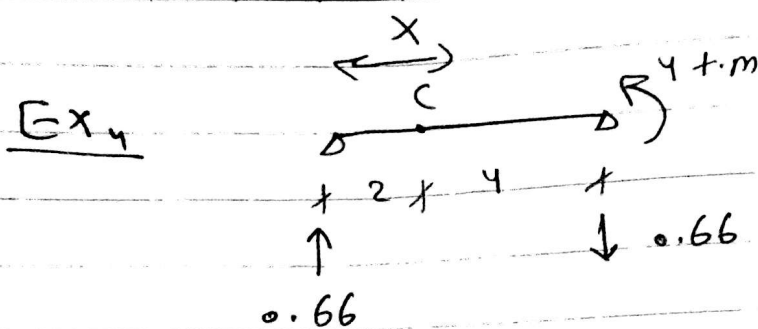 X
Ex 4
C
4 t.m
2 4
0.66
0.66